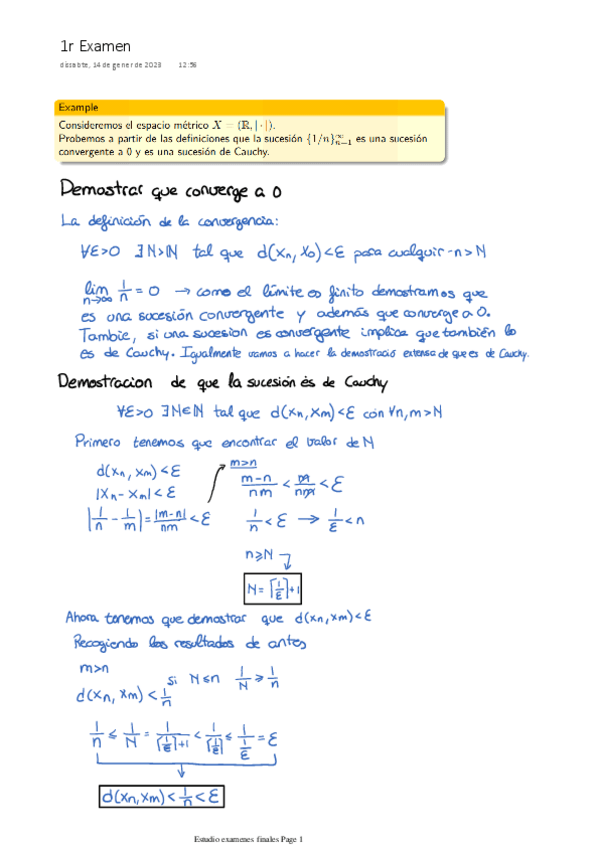 1r Examen
dissabte, 14 de gener de 2023 12:58
Example
Consideremos el espacio métrico X = (ℝ, | · |).
Probemos a partir de las definiciones que la sucesión {1/n}_{n=1}^∞ es una sucesión
convergente a 0 y es una sucesión de Cauchy.
Demostrar que converge a 0
La definición de la convergencia:
∀ε>0 ∃N>ℕ tal que d(xn, x0)<ε para cualquir n>N
lim_{n→∞} 1/n = 0 → como el límite es finito demostramos que
es una sucesión convergente y además que converge a 0.
Tambie, si una sucesion es convergente implica que también lo
es de Cauchy. Igualmente vamos a hacer la demostració extensa de que es de Cauchy.
Demostracion de que la sucesión és de Cauchy
∀ε>0 ∃N∈ℕ tal que d(xn, xm)<ε con ∀n,m>N
Primero tenemos que encontrar el valor de N
d(xn, xm)<ε
|xn-xm|<ε
|1/n - 1/m| = |m-n|/nm < ε
m>n
m-n/nm < m/nm < ε
1/n < ε → 1/ε < n
n≥N
N = ⌈1/ε⌉+1
Ahora tenemos que demostrar que d(xn,xm)<ε
Recogiendo los resultados de antes
m>n
d(xn, xm) < 1/n
si N≤n 1/N ≥ 1/n
1/n ≤ 1/N = 1/⌈1/ε⌉+1 < 1/⌈1/ε⌉ ≤ 1/1/ε = ε
d(xn,xm) < 1/n < ε
Estudio examenes finales Page 1